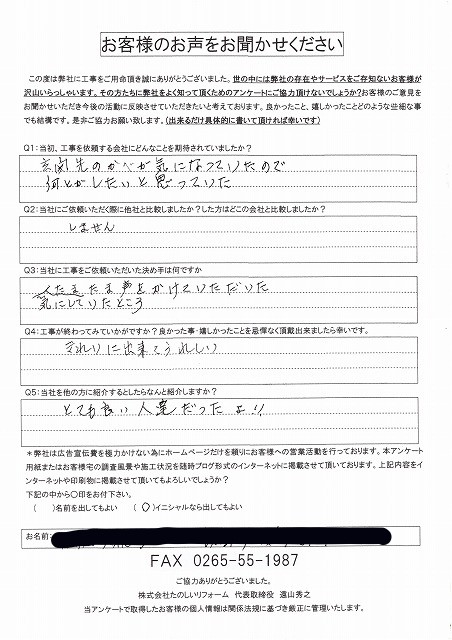 お客様のお声をお聞かせください
この度は弊社に工事をご用命頂き誠にありがとうございました。世の中には弊社の存在やサービスをご存知ないお客様が
沢山いらっしゃいます。その方たちに弊社をよく知って頂くためのアンケートにご協力頂けないでしょうか?お客様のご意見を
お聞かせいただき今後の活動に反映させていただきたいと考えております。良かったこと、嬉しかったことどのような些細な事
でも結構です。是非ご協力お願い致します。(出来るだけ具体的に書いて頂ければ幸いです)
Q1:当初、工事を依頼する会社にどんなことを期待されていましたか?
玄関先のかべが気になっていたので
何とかしたいと思っていた
Q2:当社にご依頼いただく際に他社と比較しましたか?した方はどこの会社と比較しましたか?
しません
Q3:当社に工事をご依頼いただいた決め手は何ですか
たまたま声をかけていただいた
気にしていたところ
Q4:工事が終わってみていかがですか?良かった事・嬉しかったことを忌憚なく頂戴出来ましたら幸いです。
きれいに出来てうれしい
Q5:当社を他の方に紹介するとしたらなんと紹介しますか?
とても良い人達だったよ!!
*弊社は広告宣伝費を極力かけない為にホームページだけを頼りにお客様への営業活動を行っております。本アンケート
用紙またはお客様宅の調査風景や施工状況を随時ブログ形式のインターネットに掲載させて頂いております。上記内容をイ
ンターネットや印刷物に掲載させて頂いてもよろしいでしょうか?
下記の中から○印をお付下さい。
( )名前を出してもよい (○)イニシャルなら出してもよい
お名前:
FAX 0265-55-1987
ご協力ありがとうございました。
株式会社たのしいリフォーム 代表取締役 遠山秀之
当アンケートで取得したお客様の個人情報は関係法規に基づき厳正に管理いたします。